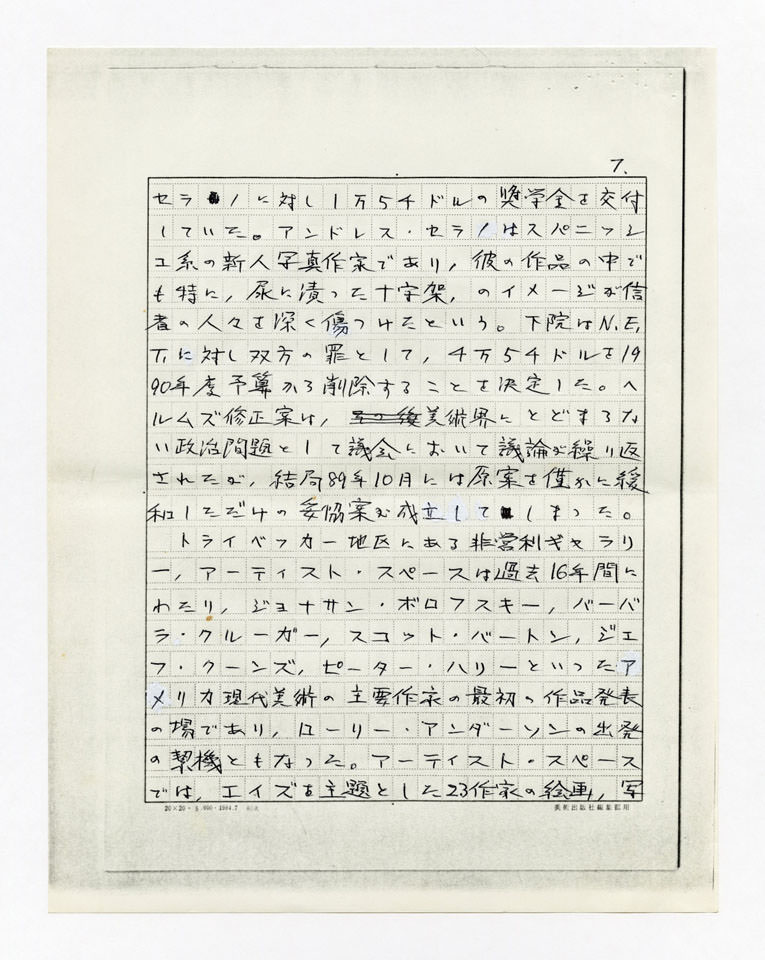 7.
セラノに対し1万5千ドルの奨学金を交付
していた。アンドレス・セラノはスペニッシ
ュ系の新人写真作家であり,彼の作品の中で
も特に,尿に漬った十字架,のイメージが信
者の人々を深く傷つけたという。下院はN.E.
T.に対し双方の罪として,4万5千ドルを19
90年度予算から削除することを決定した。ヘ
ルムズ修正案は,美術界にとどまらな
い政治問題として議会において議論が繰り返
されたが,結局89年10月には原案を僅かに緩
和しただけの妥協案が成立してしまった。
トライベッカー地区にある非営利ギャラリ
ー,アーティスト・スペースは過去16年間に
わたり,ジョナサン・ボロフスキー,バーバ
ラ・クルーガー,スコット・バートン,ジェ
フ・クーンズ,ピーター・ハリーといったア
メリカ現代美術の主要作家の最初の作品発表
の場であり,ローリー・アンダーソンの出発
の契機ともなった。アーティスト・スペース
では,エイズを主題とした23作家の絵画,写
20×20 1984.7 美術出版社編集部用